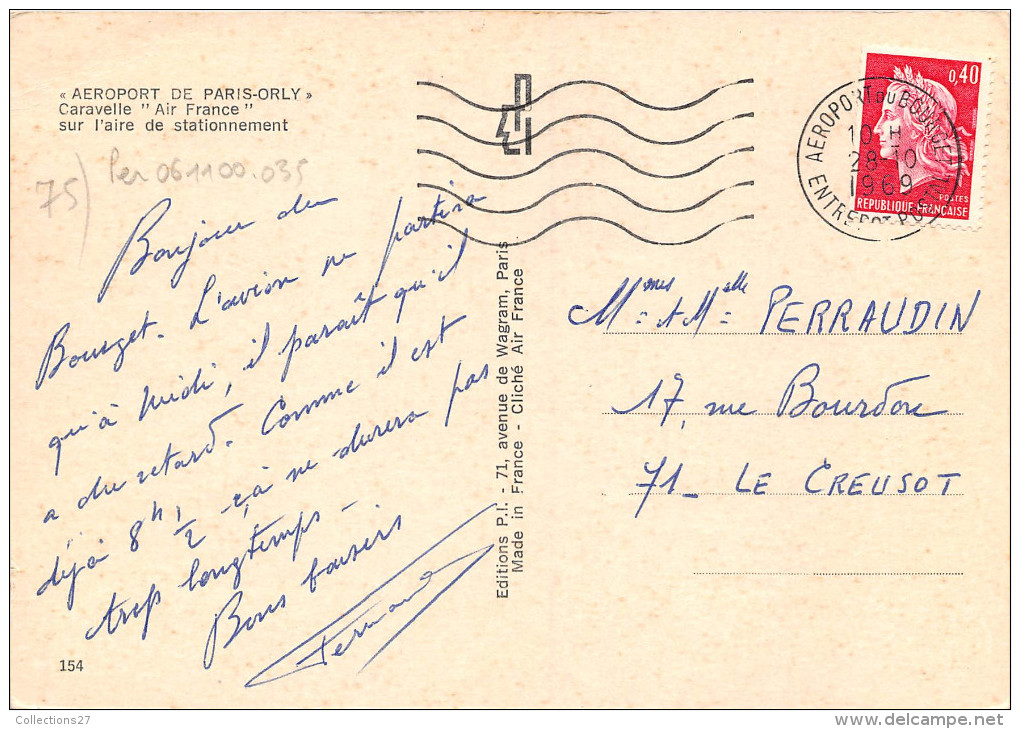 « AEROPORT DE PARIS-ORLY »
Caravelle " Air France "
sur l'aire de stationnement
75) Per 061100.035
Bonjour du
Bourget. L'avion ne partira
qu'à midi, il paraît qu'il
a du retard. Comme il est
déjà 8h 1/2 çà ne durera pas
trop longtemps -
Bons baisers
Fernand
154
Editions P.I. - 71, avenue de Wagram, Paris
Made in France - Cliché Air France
AEROPORT DU BOURGET
10 H
28-10
1969
ENTREPOT POSTAL
0,40
POSTES
REPUBLIQUE FRANÇAISE
Mmes & Melle PERRAUDIN
17, rue Bourdon
71- LE CREUSOT
Collections27
delcampe.net